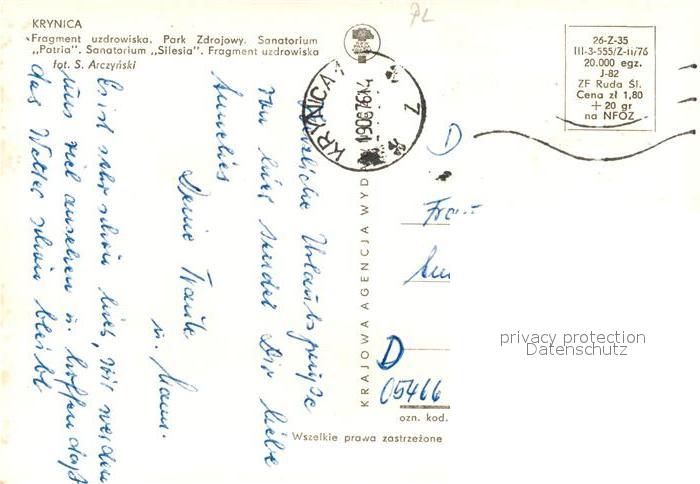 KRYNICA
Fragment uzdrowiska. Park Zdrojowy. Sanatorium
„Patria". Sanatorium „Silesia". Fragment uzdrowiska
fot. S. Arczyński
PL
KRYNICA 1
19.06.76.14
Z
26-Z-35
III-3-555/Z-II/76
20.000 egz.
J-82
ZF Ruda Śl.
Cena zł 1,80
+ 20 gr
na NFOZ
Herzliche Urlaubsgrüße
von hier sendet Dir liebe
Annelies
Deine Traute
u. Mann.
Es ist sehr schön hier, wir werden
uns viel ansehen u. hoffen daß
das Wetter schön bleibt
KRAJOWA AGENCJA WYD
D
Frau
D
05466
ozn. kod.
Wszelkie prawa zastrzeżone
privacy protection
Datenschutz